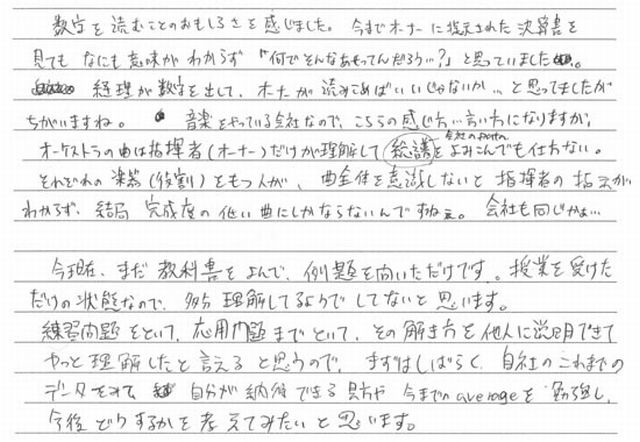 数字を読むことのおもしろさを感じました。今までオーナーに提示された決算書を
見てもなにも意味がわからず「何でそんなあもってんだろう…?」と思っていました。
経理が数字を出して、オーナーが読みこめばいいじゃないか…と思ってましたが
ちがいますね。音楽をやっている会社なので、こちらの感じた…言い方になりますが、
オーケストラの曲は指揮者(オーナー)だけが理解して総譜をよみこんでも仕方ない。
それぞれの楽器(役割)をもつ人が、曲全体を意識しないと指揮者の指示が
わからず、結局完成度の低い曲にしかならないんですねぇ。会社も同じかぁ…
今現在、まだ教科書をよんで、例題を向いただけです。授業を受けた
だけの状態なので、多分理解してるようでしてないと思います。
練習問題をといて、応用問題までといて、その解き方を他人に説明できて
やっと理解したと言えると思うので、まずはしばらく、自社のこれまでの
データをみて自分が納得できる見方や今までのaverageを勉強し、
今後どうするかを考えてみたいと思います。